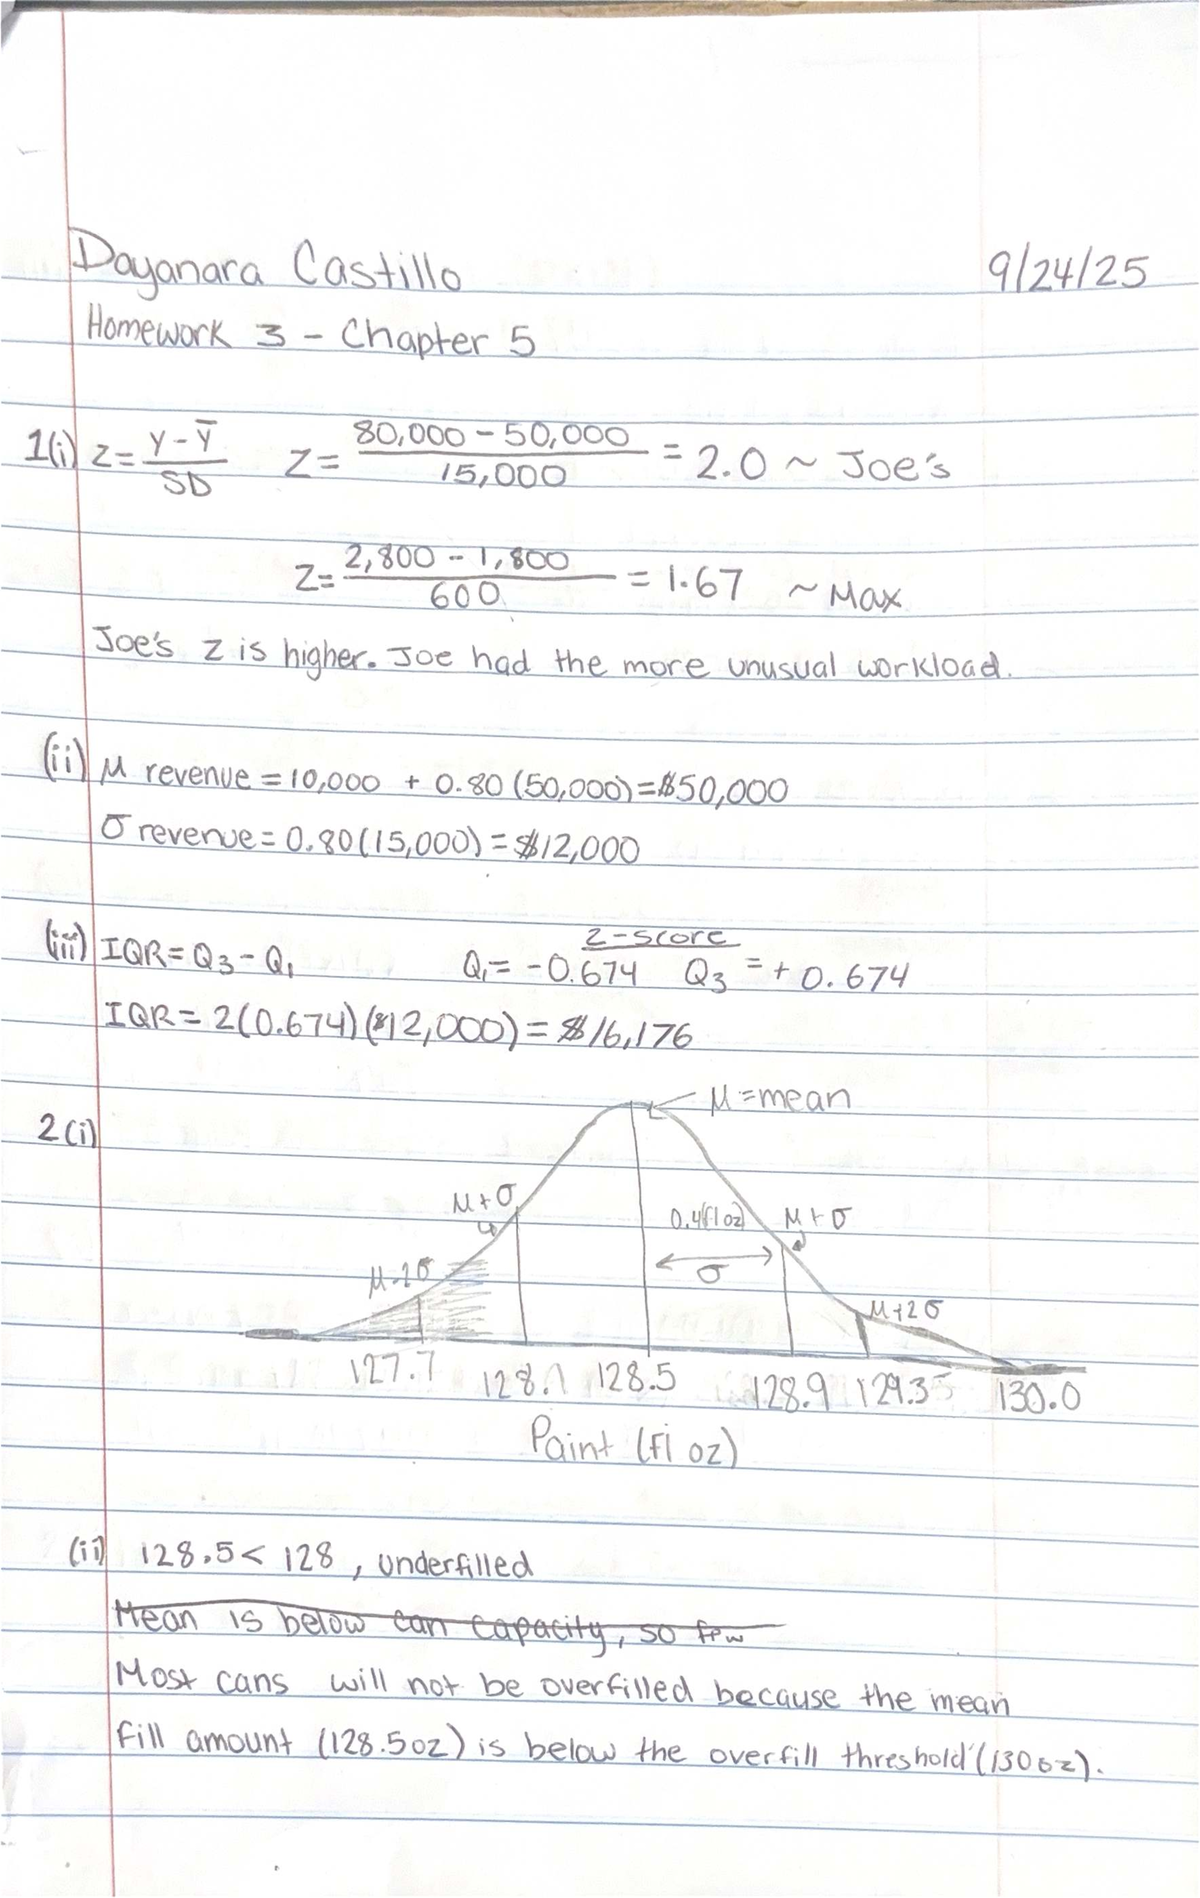 Dayanara Castillo 9/24/25
Homework 3 - Chapter 5
1(i) z = (Y - Ȳ)/SD Z = (80,000 - 50,000)/15,000 = 2.0 ~ Joe's
Z = (2,800 - 1,800)/600 = 1.67 ~ Max
Joe's z is higher. Joe had the more unusual workload.
(ii) μ revenue = 10,000 + 0.80 (50,000) = $50,000
σ revenue = 0.80(15,000) = $12,000
z-score
(iii) IQR = Q₃ - Q₁ Q₁ = -0.674 Q₃ = +0.674
IQR = 2(0.674)($12,000) = $16,176
2(i) μ = mean
μ+σ 0.4(fl oz) μ+σ
σ
μ-2σ μ+2σ
127.7 128.1 128.5 128.9 129.35 130.0
Paint (fl oz)
(ii) 128.5 < 128, underfilled
Mean is below can capacity, so few
Most cans will not be overfilled because the mean
fill amount (128.5oz) is below the overfill threshold (130oz).